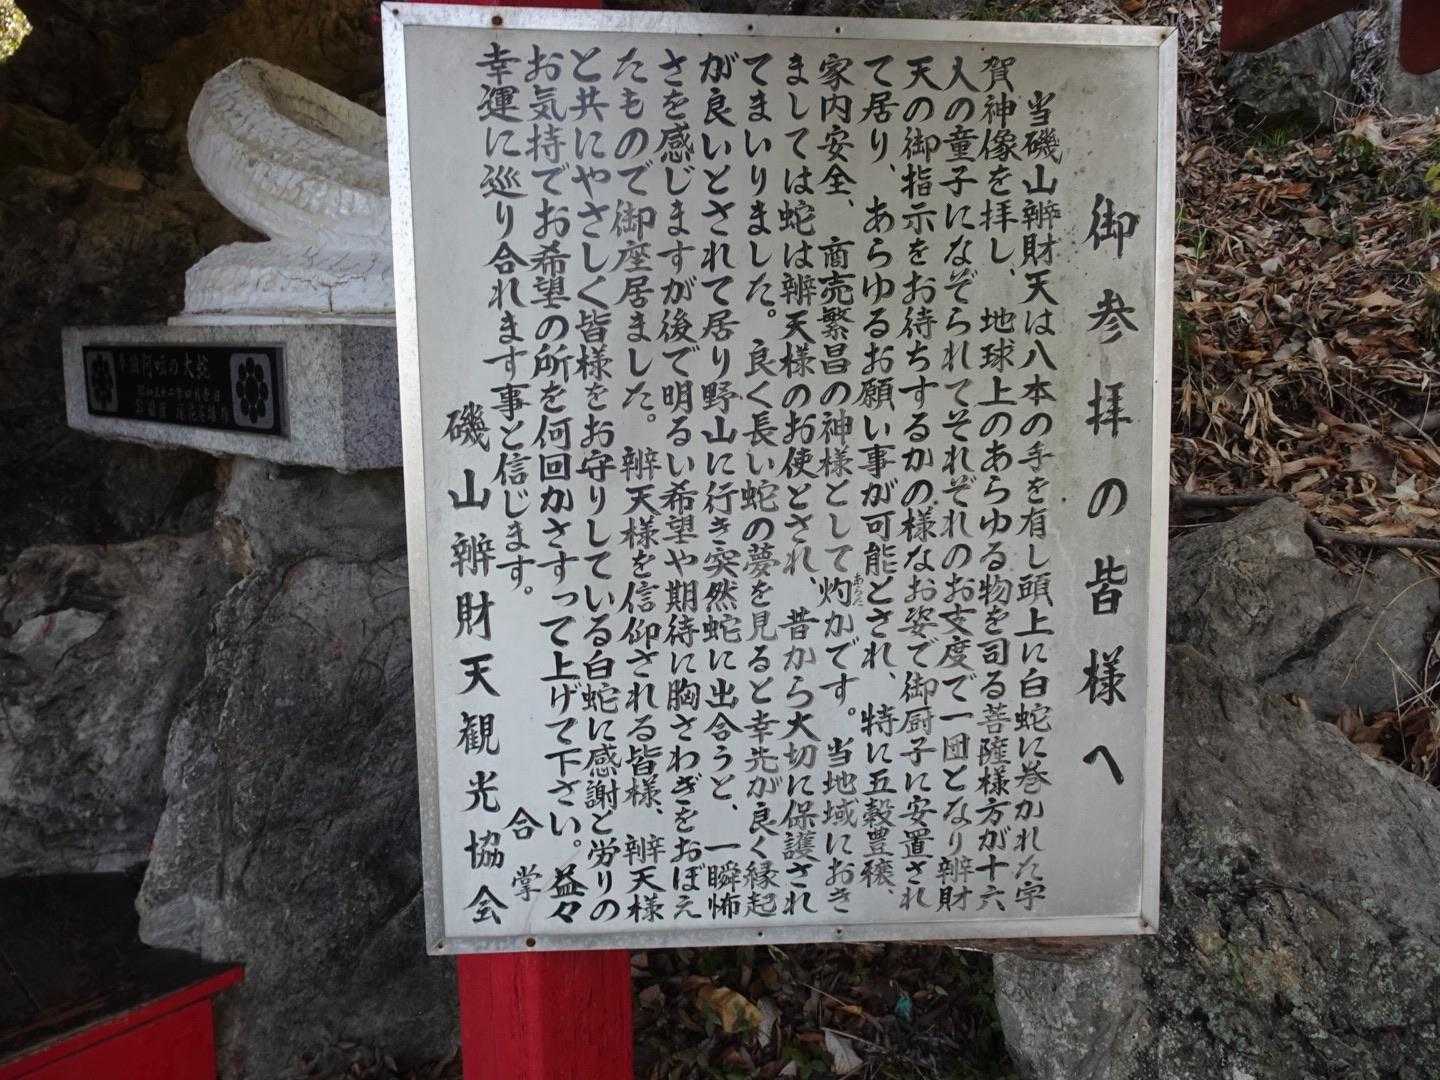 御参拝の皆様へ
当磯山辨財天は八本の手を有し頭上に白蛇に巻かれた宇
賀神像を拝し、地球上のあらゆる物を司る菩薩様方が十六
人の童子になぞられてそれぞれのお支度で一団となり辨財
天の御指示をお待ちするかの様なお姿で御厨子に安置され
て居り、あらゆるお願い事が可能とされ、特に五穀豊穣、
家内安全、商売繁昌の神様として灼かです。当地域におき
あらた
ましては蛇は辨天様のお使とされ、昔から大切に保護され
てまいりました。良く長い蛇の夢を見ると幸先が良く縁起
が良いとされて居り野山に行き突然蛇に出合うと、一瞬怖
さを感じますが後で明るい希望や期待に胸さわぎをおぼえ
たもので御座居ました。辨天様を信仰される皆様、辨天様
と共にやさしく皆様をお守りしている白蛇に感謝と労りの
お気持でお希望の所を何回かさすって上げて下さい。益々
幸運に巡り合れます事と信じます。
合掌
磯山辨財天観光協会
阿吽の大蛇